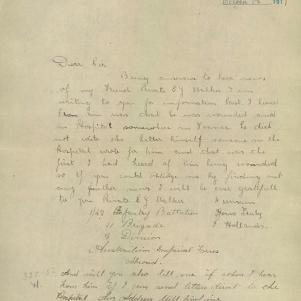 191
Dear Sir
Being anxious to have news
of my Friend Private E J Walker I am
writing to you for information last I heard
from him was that he was wounded and
in Hospital somewhere in France he did
not write the letter himself someone in the
Hospital wrote for him and that was the
first I had heard of him being wounded
so If you could oblige me by finding out
any further news I will be ever gratefull
to you Private E J Walker I remain
Infantry Battalion Yours Truly
11 Brigade
Division
Australian Imperial Forces
Abroad.
And will you also tell me if when I hear
from him if I can send letters direct to the
Hospital the Address will find me